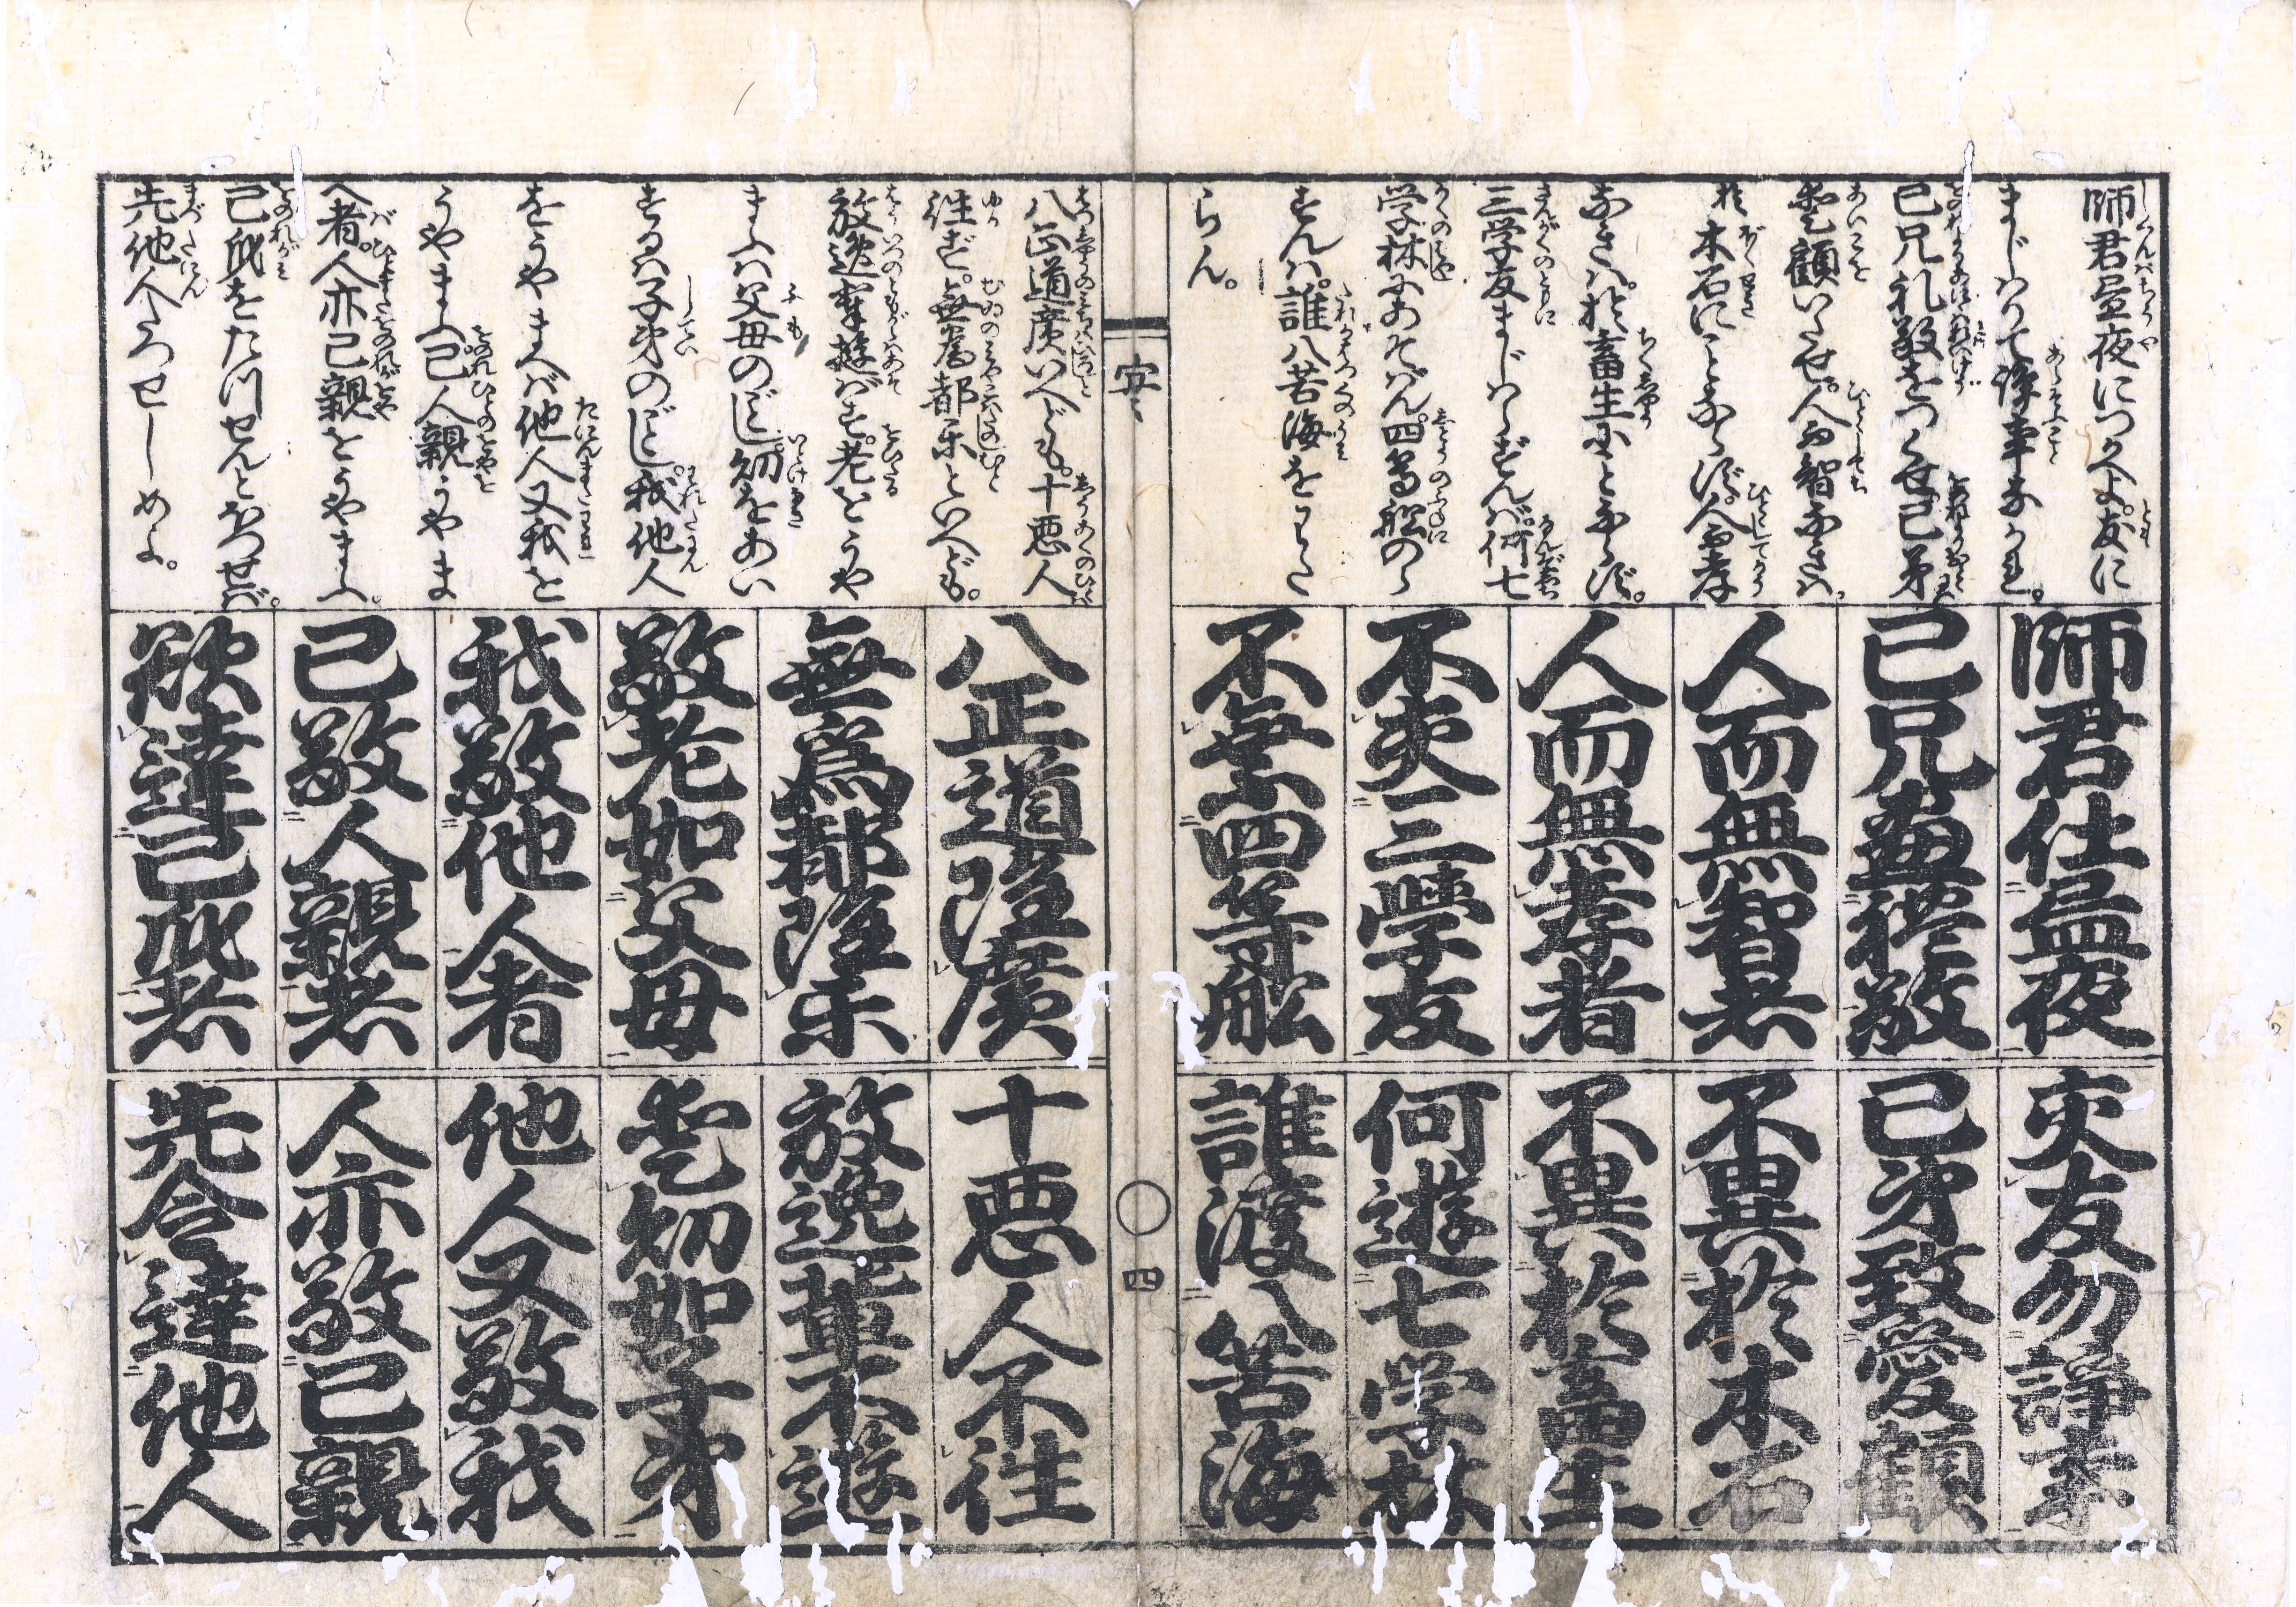 師君昼夜につかへよ。友に
まじハりて諍事なかれ。
己兄礼敬をつくせ己弟
愛顧いたせ。人而智なきハ。
於木石にことならず。人而孝
なきハ。於畜生にことならず。
三学友まじハらずんバ。何七
学林にあそばん。四等舩のら
ずんハ。誰八苦海をわた
らん。
師君仕昼夜 交友勿諍事
己兄盡禮敬 己弟致愛顧
人而無智者 不異於木石
人而無孝者 不異於畜生
不交三學友 何遊七学林
不乗四等舩 誰渡八苦海
実 四
八正道廣いへども。十悪人
往ず。無為都楽といへども。
放逸輩遊バず。老をうや
まふハ父母のごとし。幼をあい
するハ子弟のごとし。我他人
をうやまへバ他人又我を
うやまふ。己人親うやま
へ者。人亦己親をうやまふ。
己身をたつせんとほつせバ。
先他人たつせしめよ。
八正道雖廣 十悪人不往
無為都雖楽 放逸輩不遊
敬老如父母 愛幼如子弟
我敬他人者 他人又敬我
己敬人親者 人亦敬己親
欲達己身者 先令達他人